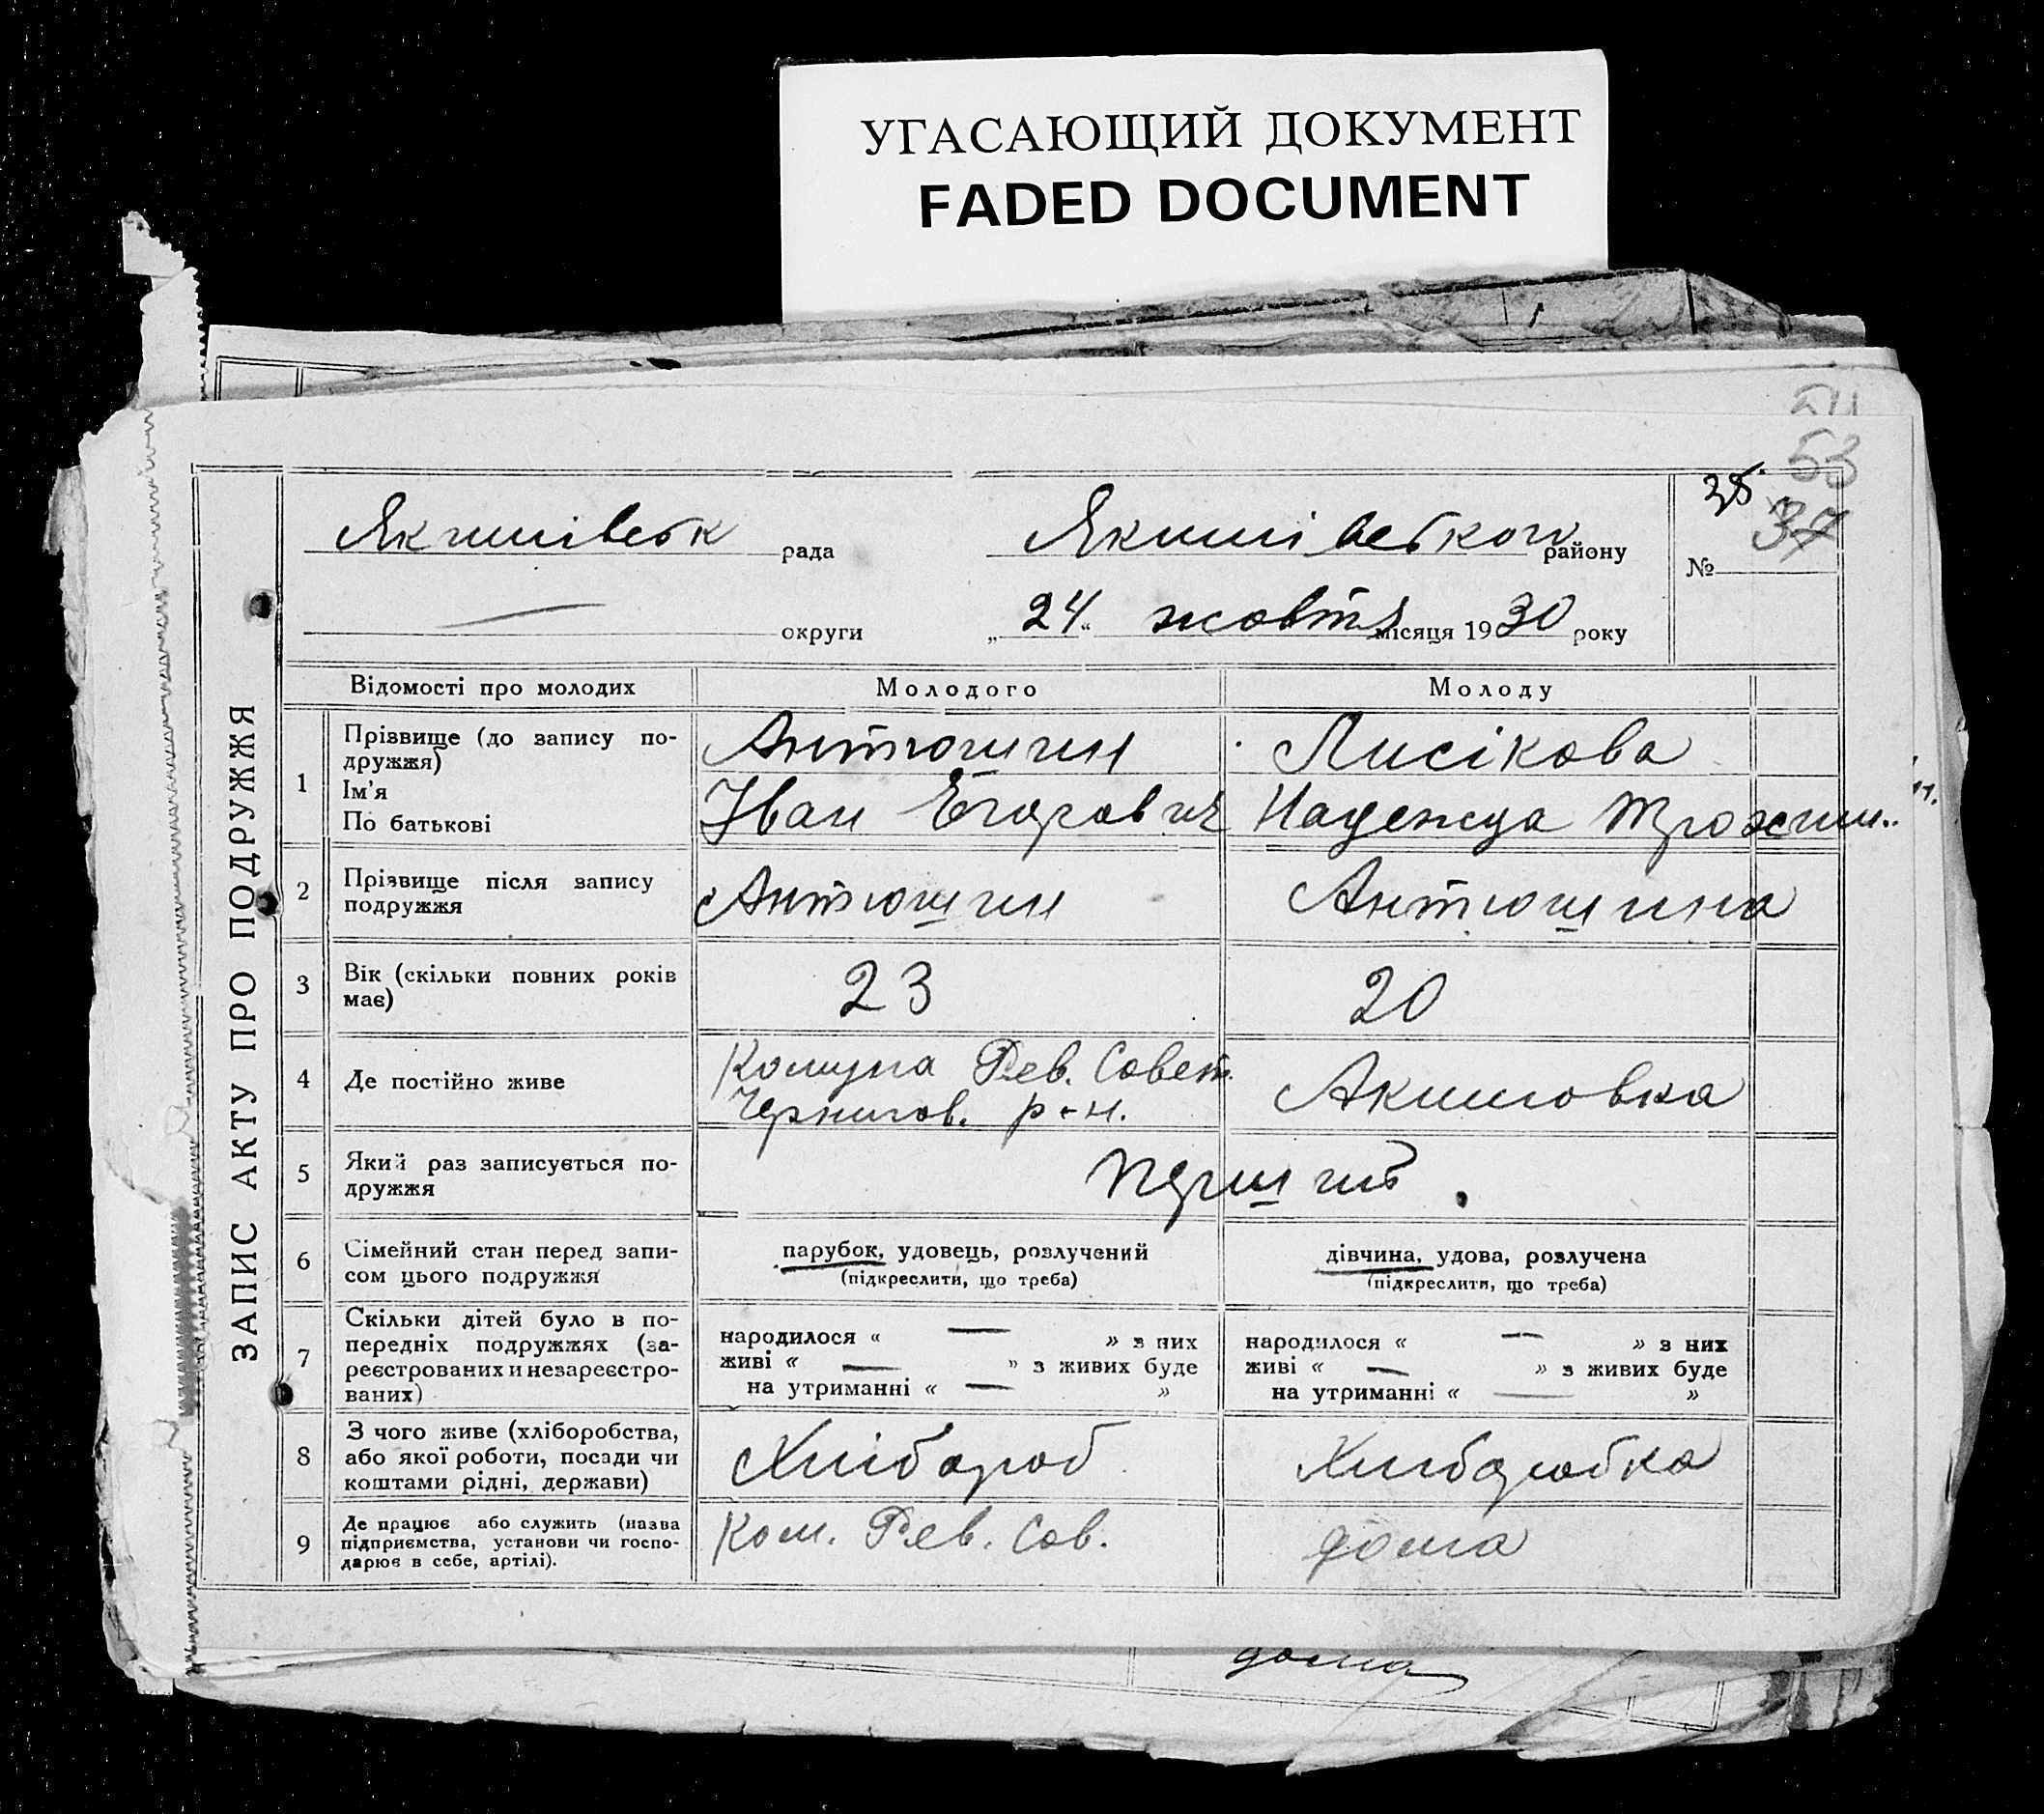 УГАСАЮЩИЙ ДОКУМЕНТ
FADED DOCUMENT
53
38
37
ЗАПИС АКТУ ПРО ПОДРУЖЖЯ
Якимівськ рада Якимівського району №
— округи „24“ жовтя місяця 1930 року
Відомості про молодих Молодого Молоду
1 Прізвище (до запису по-
дружжя) Антюшин Лисікова
Ім'я
По батькові Іван Егорович Надежда Трохим..
2 Прізвище після запису
подружжя Антюшин Антюшина
3 Вік (скільки повних років
має) 23 20
4 Де постійно живе Комуна Рев. Совет.
Чернигов. р-н. Акимовка
5 Який раз записується по-
дружжя перший.
6 Сімейний стан перед запи-
сом цього подружжя парубок, удовець, розлучений
(підкреслити, що треба) дівчина, удова, розлучена
(підкреслити, що треба)
7 Скільки дітей було в по-
передніх подружжях (за-
реєстрованих и незареєстро-
ваних)
народилося « — » з них
живі « — » з живих буде
на утриманні « — »
народилося « — » з них
живі « — » з живих буде
на утриманні « — »
8 З чого живе (хліборобства,
або якої роботи, посади чи
коштами рідні, держави) Хлібороб Хлиборобка
9 Де працює або служить (назва
підприємства, установи чи госпо-
дарює в себе, артілі). Ком. Рев. Сов. дома
дома